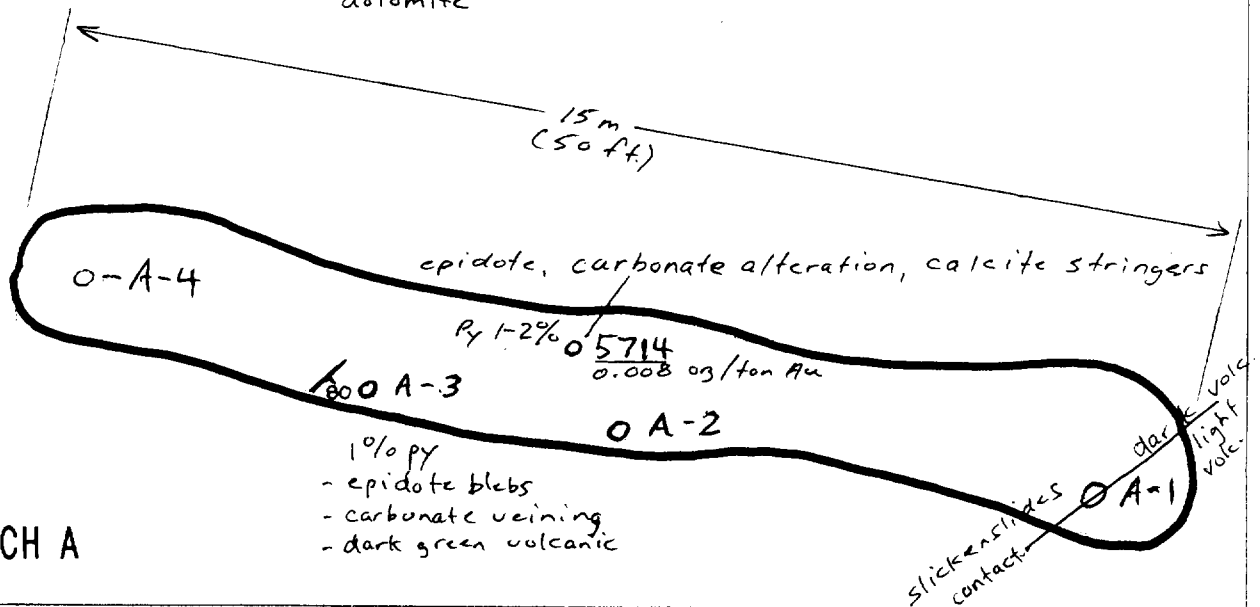 dolomite
15 m
(50 ft.)
epidote, carbonate alteration, calcite stringers
O-A-4
Py 1-2%
5714
0.008 oz/ton Au
80
A-3
A-2
1% py
- epidote blebs
- carbonate veining
- dark green volcanic
dark volc.
light
volc.
A-1
slickenslides
contact
CH A